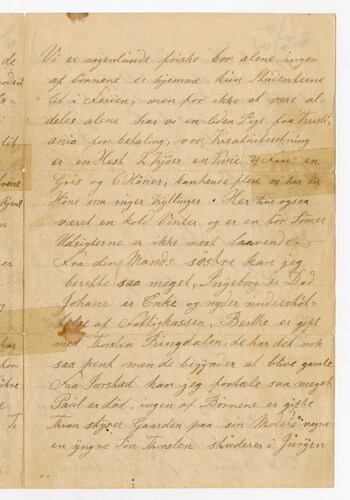 Vi er nogenlunde friske bor alene ingen
af börnene er hjemme kun Studenterne
lit i Ferien, men for ikke at vere al-
deles alene har vi en liden Pige fra Kristi
ania for betaling, vor Kreaturbesetning
er en Hest 2 Kjöer en Kvie 4 Faar en
Gris og 6 Höner, kanhende flere vi har en
Höne som ruger Kyllinger. Her har ogsaa
været en kold Vinter og er en tör Somer
Udsigterne er ikke mest laavende.
Fra din Mands söstre kan jeg
berette saa meget, Ingeborg er Död
Johane er Enke og nyder understöt-
telse af Fattigkassen, Berthe er gift
med Thorsten Ringdalen, de har det nok
saa pent men de begynder at blive gamle
Fra Sorstad kan jeg fortæle saa meget
Paul er död, ingen af Börnene er gifte
Thron styrer Gaarden paa sin Moders vegne
en yngre Sön Thorsten studerer i